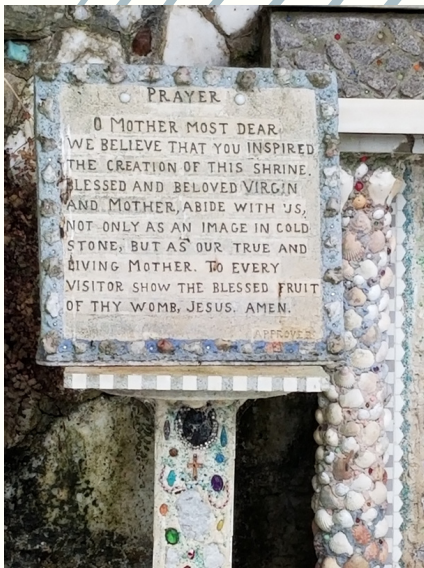 PRAYER
O MOTHER MOST DEAR,
WE BELIEVE THAT YOU INSPIRED
THE CREATION OF THIS SHRINE.
BLESSED AND BELOVED VIRGIN
AND MOTHER, ABIDE WITH US,
NOT ONLY AS AN IMAGE IN COLD
STONE, BUT AS OUR TRUE AND
LIVING MOTHER. TO EVERY
VISITOR SHOW THE BLESSED FRUIT
OF THY WOMB, JESUS. AMEN.
APPROVED